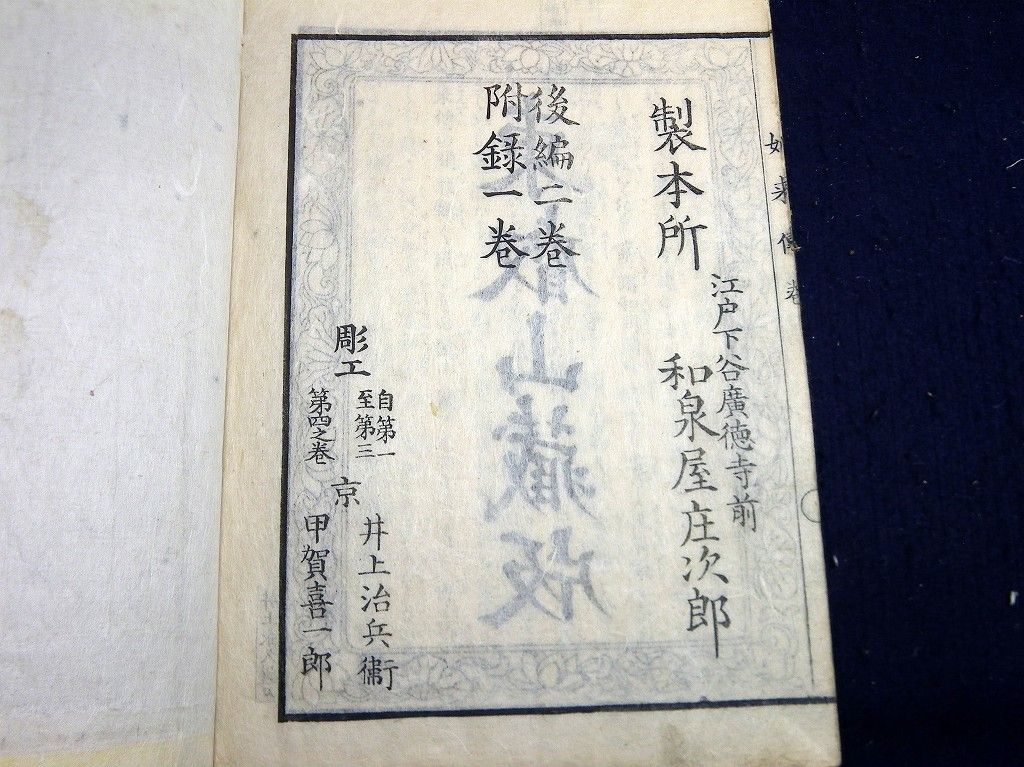 如来
製本所
江戸下谷廣徳寺前
和泉屋庄次郎
後編二巻
附録一巻
彫工
自第一
至第三
京
井上治兵衛
第四之巻
甲賀喜一郎
山藏版